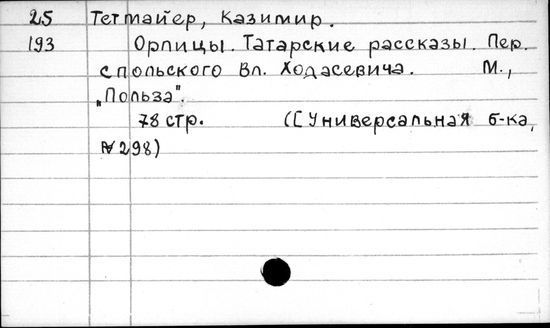 25 Тетмайер, Казимир.
193 Орлицы. Татарские рассказы. Пер.
с польского Вл. Ходасевича. М.,
„Польза".
78 стр. ([Универсальная б-ка,
№298)